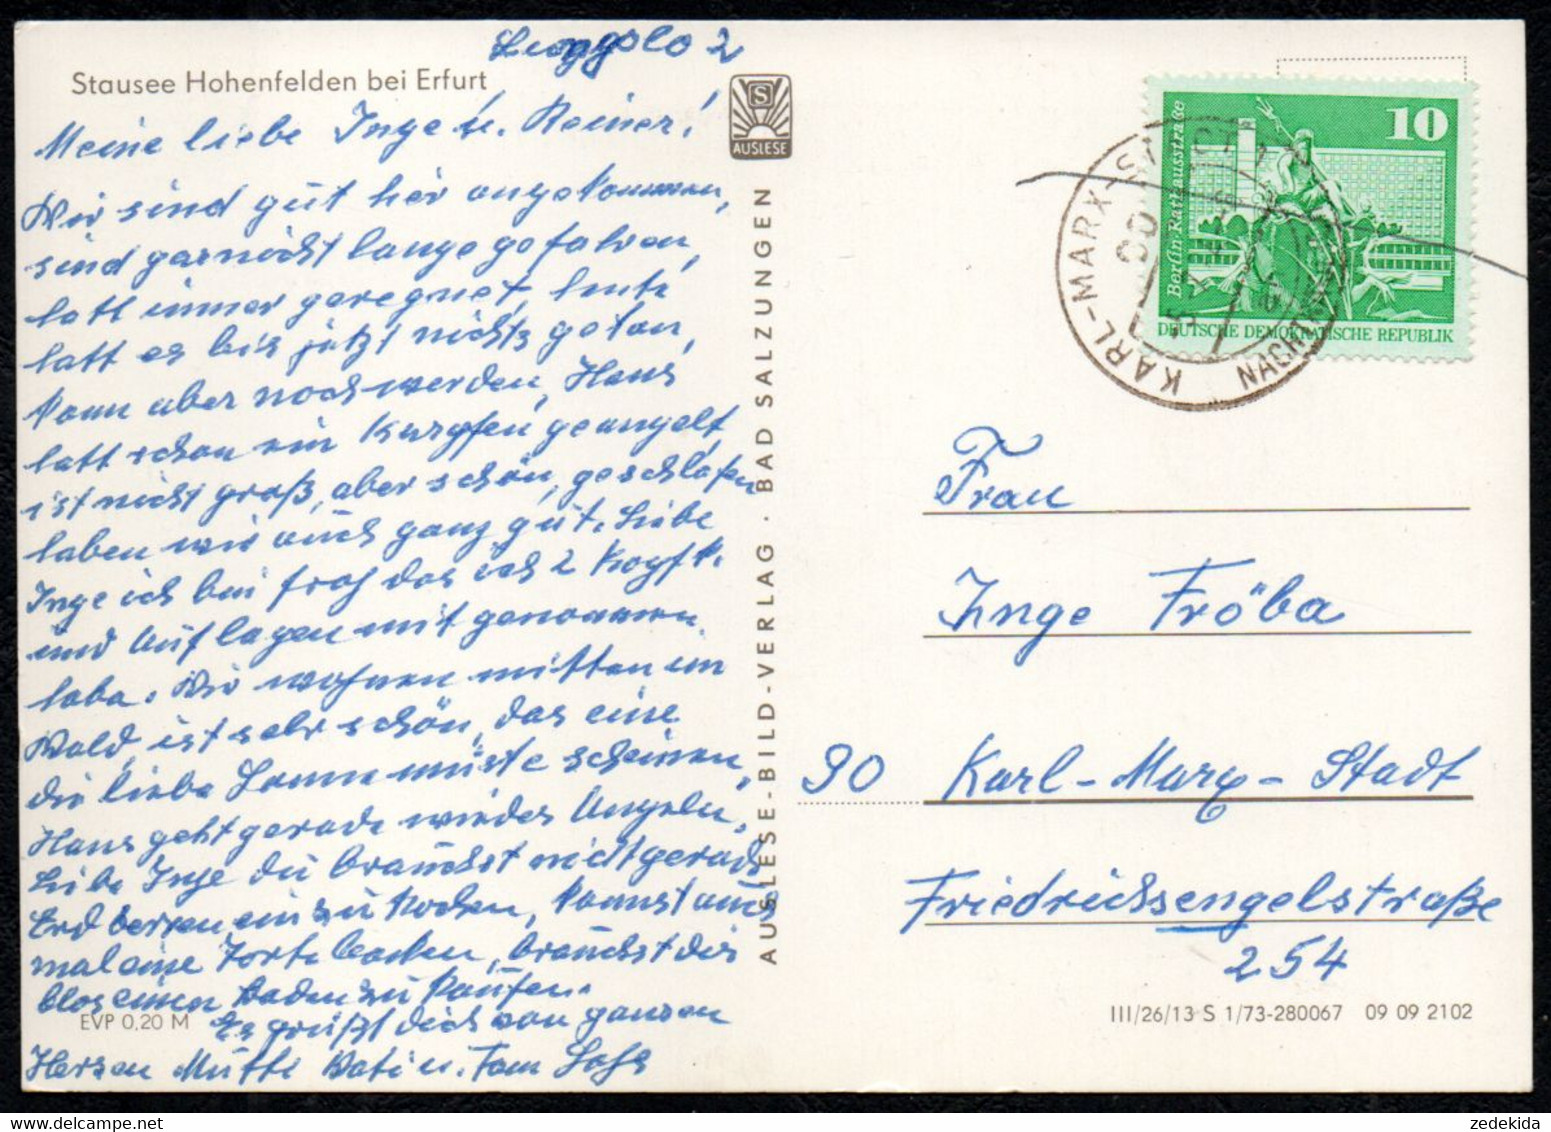 Stausee Hohenfelden bei Erfurt
Meine liebe Inge u. Reiner!
Wir sind gut hier angekommen,
sind garnicht lange gefahren,
hatt immer geregnet, heute
hatt es bis jetzt nichts getan,
kann aber noch werden, Hans
hatt schon ein Karpfen geangelt,
ist nicht groß, aber schön, geschlafen
haben wir auch ganz gut. Liebe
Inge ich bin froh das ich 2 Kopfk.
und Auflagen mit genommen
habe. Wir wohnen mitten im
Wald, ist sehr schön, das eine
die liebe Sonne müste scheinen,
Hans geht gerade wieder Angeln.
Liebe Inge du brauchst nicht gerade
Erdberren einzukochen, kannst auch
mal eine Torte backen, brauchst dir
blos einen Boden zu kaufen.
Es grüßt dich von ganzen
Herzen Mutti Vati u. Tom
EVP 0,20 M
S
AUSLESE
AUSLESE-BILD-VERLAG · BAD SALZUNGEN
10
Berlin Rathausstraße
DEUTSCHE DEMOKRATISCHE REPUBLIK
KARL-MARX-STADT
Frau
Inge Fröba
90 Karl-Marx-Stadt
Friedrichsengelstraße
254
III/26/13 S 1/73-280067 09 09 2102
zedekida